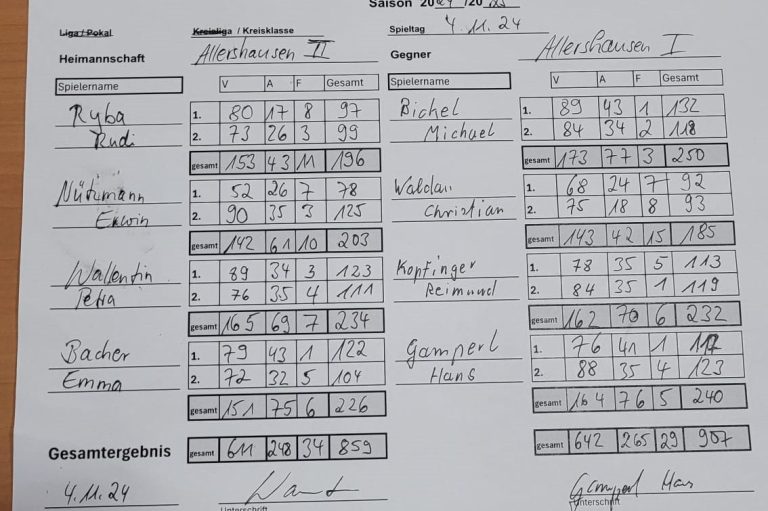 Saison 2024 /2025
Liga / Pokal Kreisliga / Kreisklasse Spieltag 4.11.24
Heimannschaft Allershausen II Gegner Allershausen I
Spielername V A F Gesamt Spielername V A F Gesamt
Ryba 1. 80 17 8 97 Bichel 1. 89 43 1 132
Rudi 2. 73 26 3 99 Michael 2. 84 34 2 118
gesamt 153 43 11 196 gesamt 173 77 3 250
Nützmann 1. 52 26 7 78 Waldau 1. 68 24 7 92
Erwin 2. 90 35 3 125 Christian 2. 75 18 8 93
gesamt 142 61 10 203 gesamt 143 42 15 185
Wallentin 1. 89 34 3 123 Kopfinger 1. 78 35 5 113
Petra 2. 76 35 4 111 Reimund 2. 84 35 1 119
gesamt 165 69 7 234 gesamt 162 70 6 232
Bacher 1. 79 43 1 122 Gamperl 1. 76 41 1 117
Emma 2. 72 32 5 104 Hans 2. 88 35 4 123
gesamt 151 75 6 226 gesamt 164 76 5 240
Gesamtergebnis gesamt 611 248 34 859 gesamt 642 265 29 907
4.11.24 Gamperl Hans
Unterschrift Unterschrift